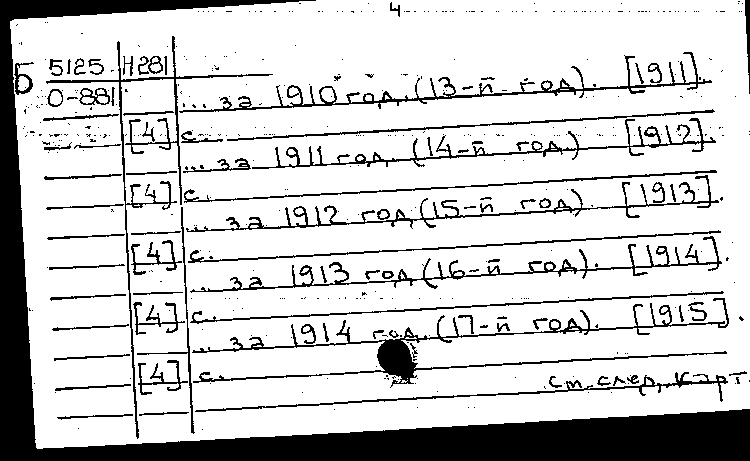 4
Б 5125 Н281
0-881 ... за 1910 год. (13-й год). [1911].
[4] с.
... за 1911 год. (14-й год.) [1912].
[4] с.
... за 1912 год (15-й год). [1913].
[4] с.
... за 1913 год (16-й год). [1914].
[4] с.
... за 1914 год. (17-й год). [1915].
[4] с.
см. след. карт.